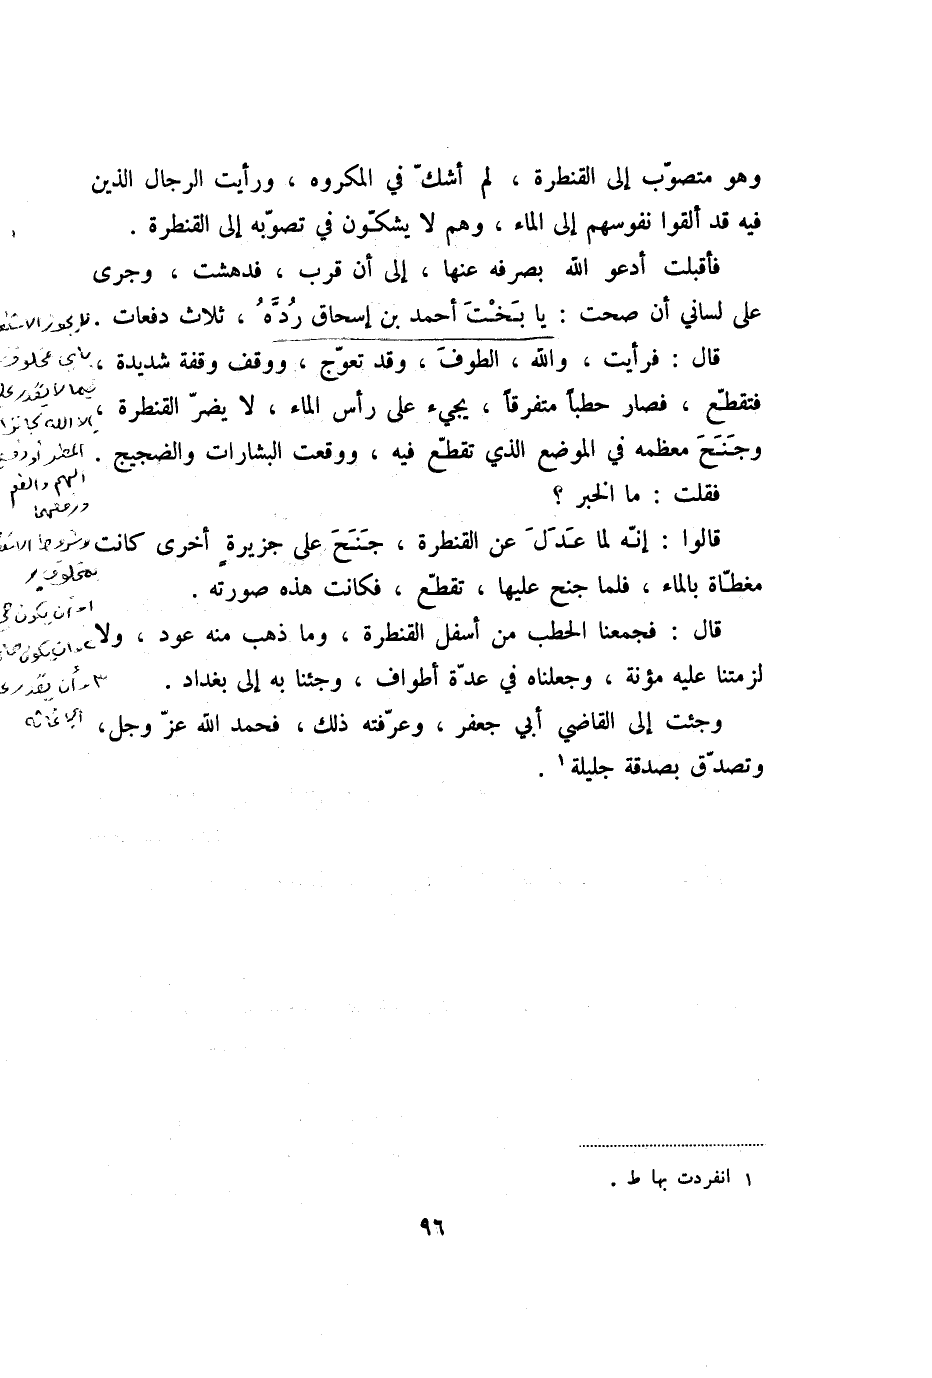 وهو متصوّب إلى القنطرة ، لم أشكّ في المكروه ، ورأيت الرجال الذين
فيه قد ألقوا نفوسهم إلى الماء ، وهم لا يشكّون في تصوّبه إلى القنطرة .
فأقبلت أدعو الله بصرفه عنها ، إلى أن قرب ، فدهشت ، وجرى
على لساني أن صحت : يا بَخْتَ أحمد بن إسحاق رُدَّهُ ، ثلاث دفعات .
قال : فرأيت ، والله ، الطوفَ ، وقد تعوّج ، ووقف وقفة شديدة ،
فتقطّع ، فصار حطباً متفرقاً ، يجيء على رأس الماء ، لا يضرّ القنطرة ،
وجَنَحَ معظمه في الموضع الذي تقطّع فيه ، ووقعت البشارات والضجيج .
فقلت : ما الخبر ؟
قالوا : إنّه لما عَدَلَ عن القنطرة ، جَنَحَ على جزيرةٍ أخرى كانت
مغطّاة بالماء ، فلما جنح عليها ، تقطّع ، فكانت هذه صورته .
قال : فجمعنا الحطب من أسفل القنطرة ، وما ذهب منه عود ، ولا
لزمتنا عليه مؤنة ، وجعلناه في عدّة أطواف ، وجئنا به إلى بغداد .
وجئت إلى القاضي أبي جعفر ، وعرّفته ذلك ، فحمد الله عزّ وجل ،
وتصدّق بصدقة جليلة ١ .
فلا يجوز
بأي مخلوق
فيما لا يقدر
إلا الله
المطر أو دفع
الهم والغم
وشروط
بمخلوق
١- أن يكون
٢- أن يكون
٣- أن يقدر
١ انفردت بها ط .
٩٦